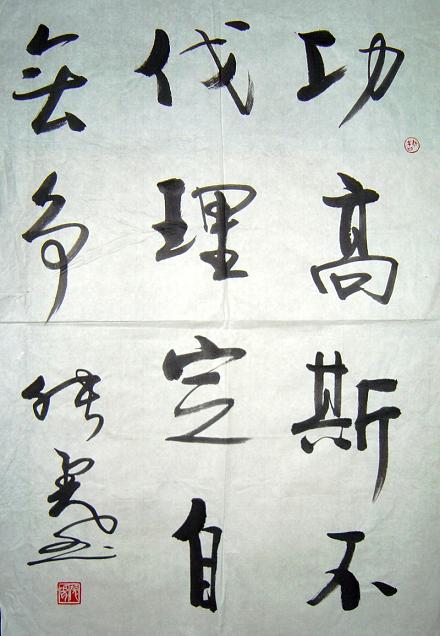 功高斯不
伐理定自
无争